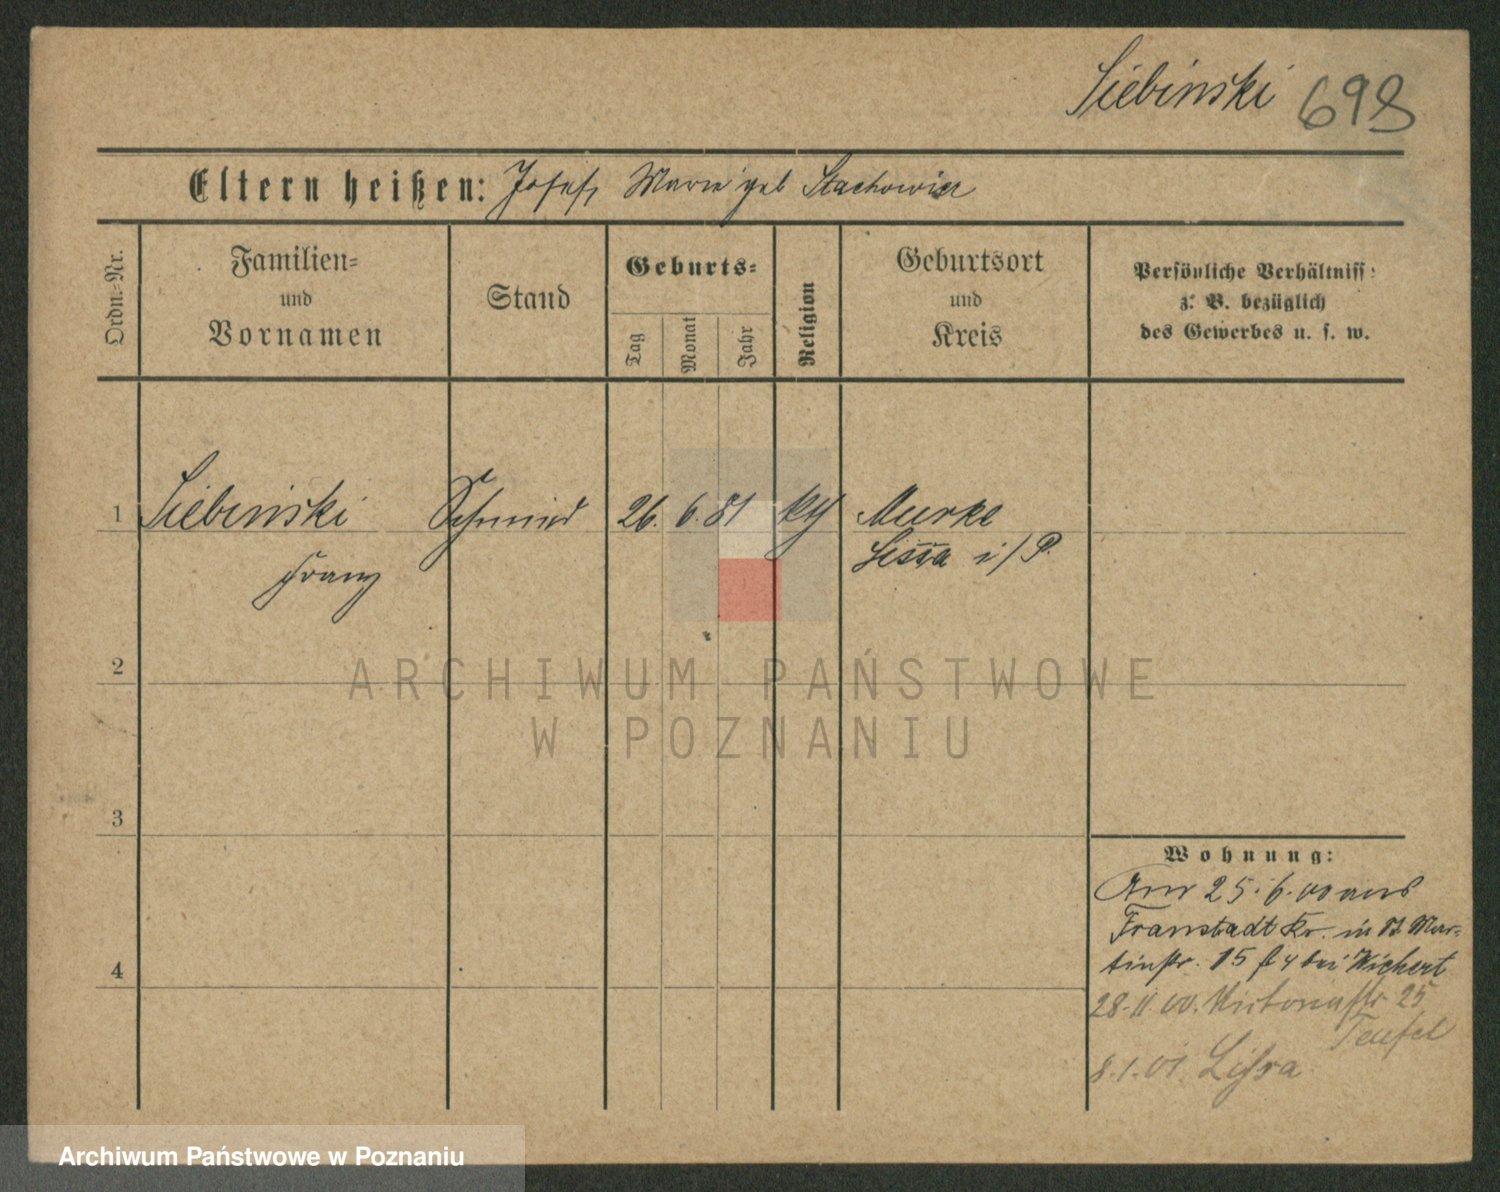 Siebinski 698
Eltern heißen: Josef, Marie geb Stachowicz
Ordn.-Nr.
Familien=
und
Vornamen
Stand
Geburts=
Tag
Monat
Jahr
Religion
Geburtsort
und
Kreis
Persönliche Verhältniss:
z. B. bezüglich
des Gewerbes u. s. w.
1 Siebinski Schmied 26. 6. 81 kth Murke
Franz Lissa i/P.
2
3
4
Wohnung:
Am 25.6.00 aus
Fraustadt Kr. in St Mar=
tinstr. 15 bei Wichert
28.11.00. Victoriastr 25
Teufel
8.1.01. Lissa
ARCHIWUM PAŃSTWOWE
W POZNANIU
Archiwum Państwowe w Poznaniu